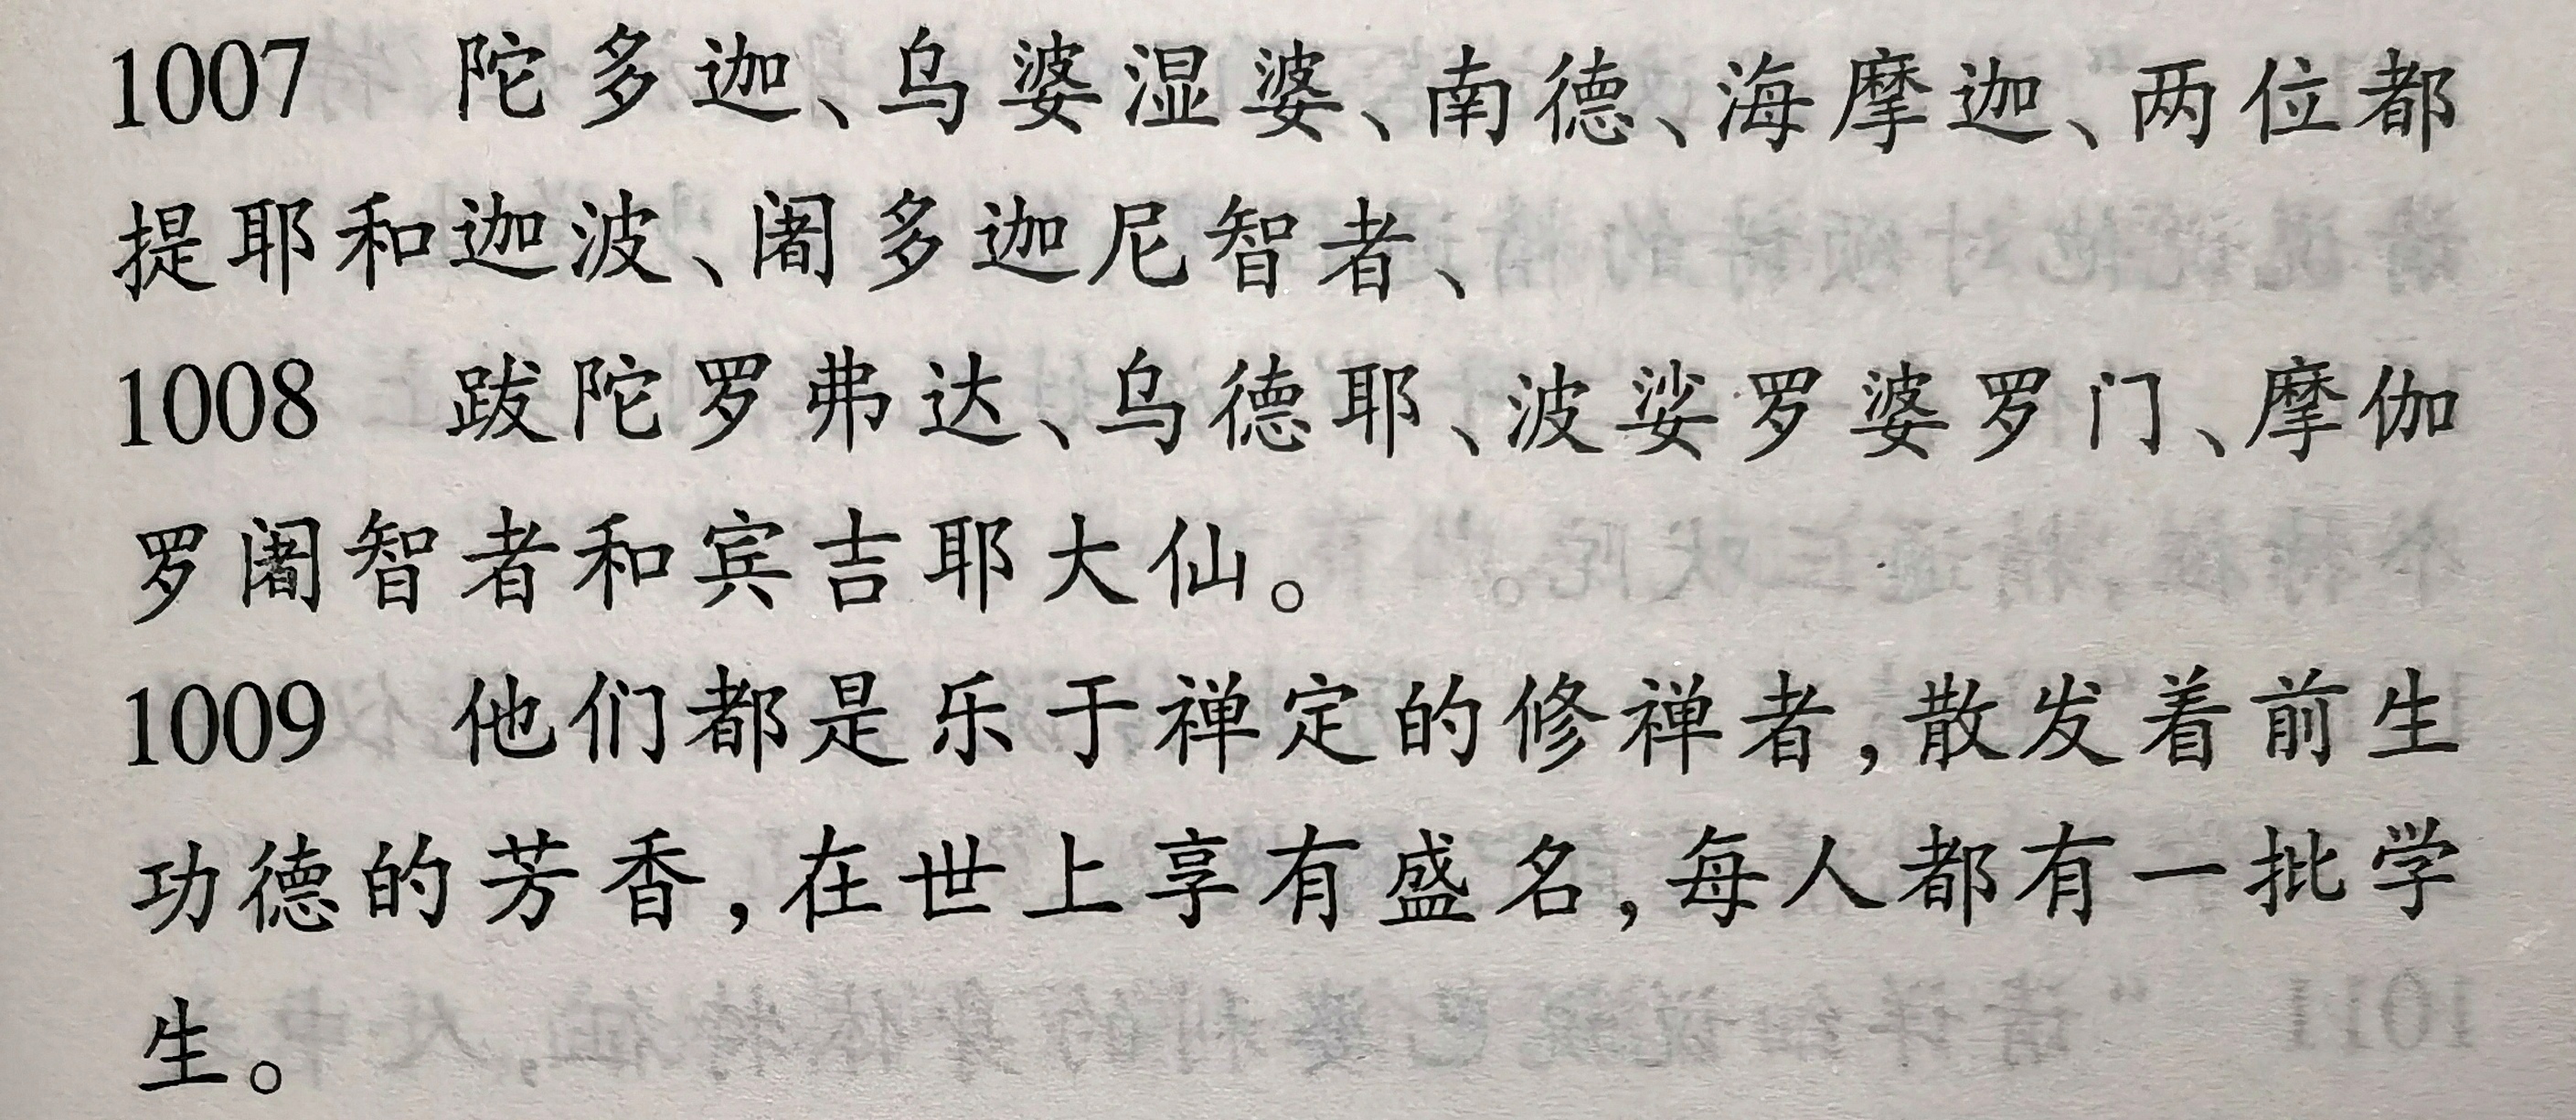 1007 陀多迦、乌婆湿婆、南德、海摩迦、两位都
提耶和迦波、阇多迦尼智者、
1008 跋陀罗弗达、乌德耶、波娑罗婆罗门、摩伽
罗阇智者和宾吉耶大仙。
1009 他们都是乐于禅定的修禅者,散发着前生
功德的芳香,在世上享有盛名,每人都有一批学
生。